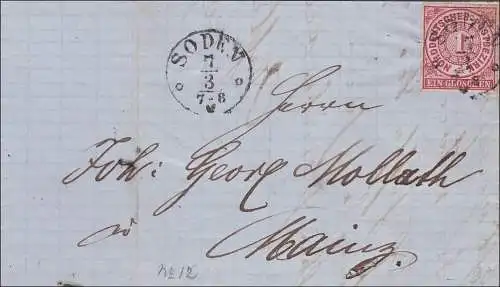 SODEN
7
3
7-8
NORDDEUTSCHER POSTBEZIRK
1
EIN GROSCHEN
Herrn
Joh: Georg Mollath
in
Mainz.
No 12